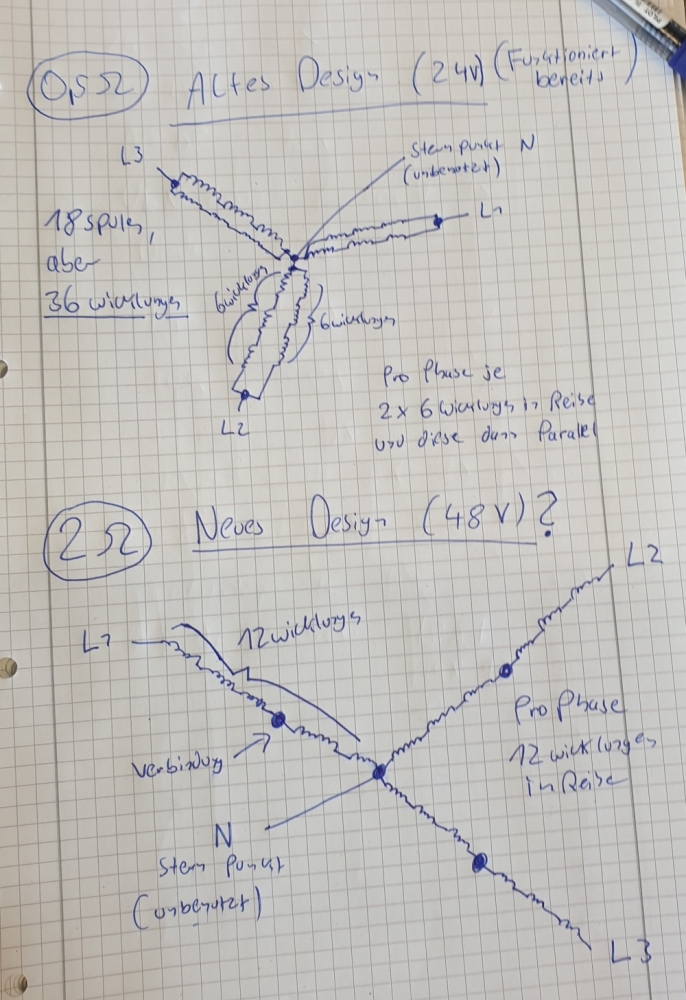 0,5Ω Altes Design (24V) (Funktioniert
bereits)
L3
Sternpunkt N
(unbenutzt)
L1
18 Spulen,
aber
36 wicklungen
6 wicklungen
6 wicklungen
L2
Pro Phase je
2 x 6 wicklungen in Reihe
und diese dann Parallel
2Ω Neues Design (48V)?
L2
L1
12 wicklungen
Verbindung
Pro Phase
12 wicklungen
in Reihe
N
Stern Punkt
(unbenutzt)
L3